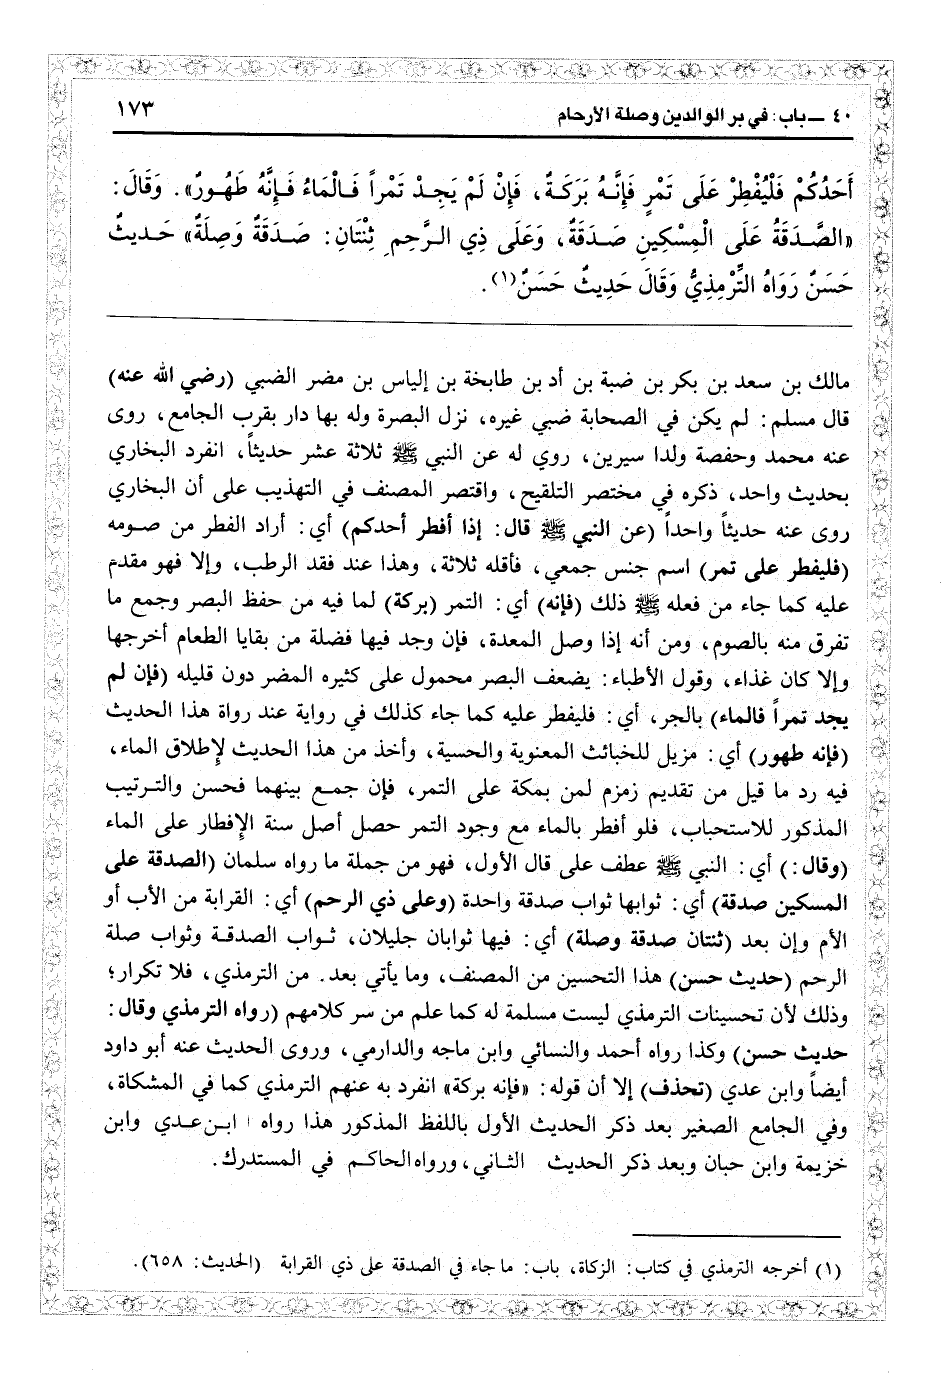 ٤٠ ـ باب: في بر الوالدين وصلة الأرحام ١٧٣
أَحَدُكُمْ فَلْيُفْطِرْ عَلَى تَمْرٍ فَإِنَّهُ بَرَكَةٌ، فَإِنْ لَمْ يَجِدْ تَمْراً فَالْمَاءُ فَإِنَّهُ طَهُورٌ». وَقَالَ:
«الصَّدَقَةُ عَلَى الْمِسْكِينِ صَدَقَةٌ، وَعَلَى ذِي الرَّحِمِ ثِنْتَانِ: صَدَقَةٌ وَصِلَةٌ» حَدِيثٌ
حَسَنٌ رَوَاهُ التِّرْمِذِيُّ وَقَالَ حَدِيثٌ حَسَنٌ(١).
مالك بن سعد بن بكر بن ضبة بن أد بن طابخة بن إلياس بن مضر الضبي (رضي الله عنه)
قال مسلم: لم يكن في الصحابة ضبي غيره، نزل البصرة وله بها دار بقرب الجامع، روى
عنه محمد وحفصة ولدا سيرين، روي له عن النبي ﷺ ثلاثة عشر حديثاً، انفرد البخاري
بحديث واحد، ذكره في مختصر التلقيح، واقتصر المصنف في التهذيب على أن البخاري
روى عنه حديثاً واحداً (عن النبي ﷺ قال: إذا أفطر أحدكم) أي: أراد الفطر من صومه
(فليفطر على تمر) اسم جنس جمعي، فأقله ثلاثة، وهذا عند فقد الرطب، وإلا فهو مقدم
عليه كما جاء من فعله ﷺ ذلك (فإنه) أي: التمر (بركة) لما فيه من حفظ البصر وجمع ما
تفرق منه بالصوم، ومن أنه إذا وصل المعدة، فإن وجد فيها فضلة من بقايا الطعام أخرجها
وإلا كان غذاء، وقول الأطباء: يضعف البصر محمول على كثيره المضر دون قليله (فإن لم
يجد تمراً فالماء) بالجر، أي: فليفطر عليه كما جاء كذلك في رواية عند رواة هذا الحديث
(فإنه طهور) أي: مزيل للخبائث المعنوية والحسية، وأخذ من هذا الحديث لإطلاق الماء،
فيه رد ما قيل من تقديم زمزم لمن بمكة على التمر، فإن جمع بينهما فحسن والترتيب
المذكور للاستحباب، فلو أفطر بالماء مع وجود التمر حصل أصل سنة الإفطار على الماء
(وقال:) أي: النبي ﷺ عطف على قال الأول، فهو من جملة ما رواه سلمان (الصدقة على
المسكين صدقة) أي: ثوابها ثواب صدقة واحدة (وعلى ذي الرحم) أي: القرابة من الأب أو
الأم وإن بعد (ثنتان صدقة وصلة) أي: فيها ثوابان جليلان، ثواب الصدقة وثواب صلة
الرحم (حديث حسن) هذا التحسين من المصنف، وما يأتي بعد. من الترمذي، فلا تكرار؛
وذلك لأن تحسينات الترمذي ليست مسلمة له كما علم من سر كلامهم (رواه الترمذي وقال:
حديث حسن) وكذا رواه أحمد والنسائي وابن ماجه والدارمي، وروى الحديث عنه أبو داود
أيضاً وابن عدي (تحذف) إلا أن قوله: «فإنه بركة» انفرد به عنهم الترمذي كما في المشكاة،
وفي الجامع الصغير بعد ذكر الحديث الأول باللفظ المذكور هذا رواه ابن عدي وابن
خزيمة وابن حبان وبعد ذكر الحديث الثاني، ورواه الحاكم في المستدرك.
(١) أخرجه الترمذي في كتاب: الزكاة، باب: ما جاء في الصدقة على ذي القرابة (الحديث: ٦٥٨).